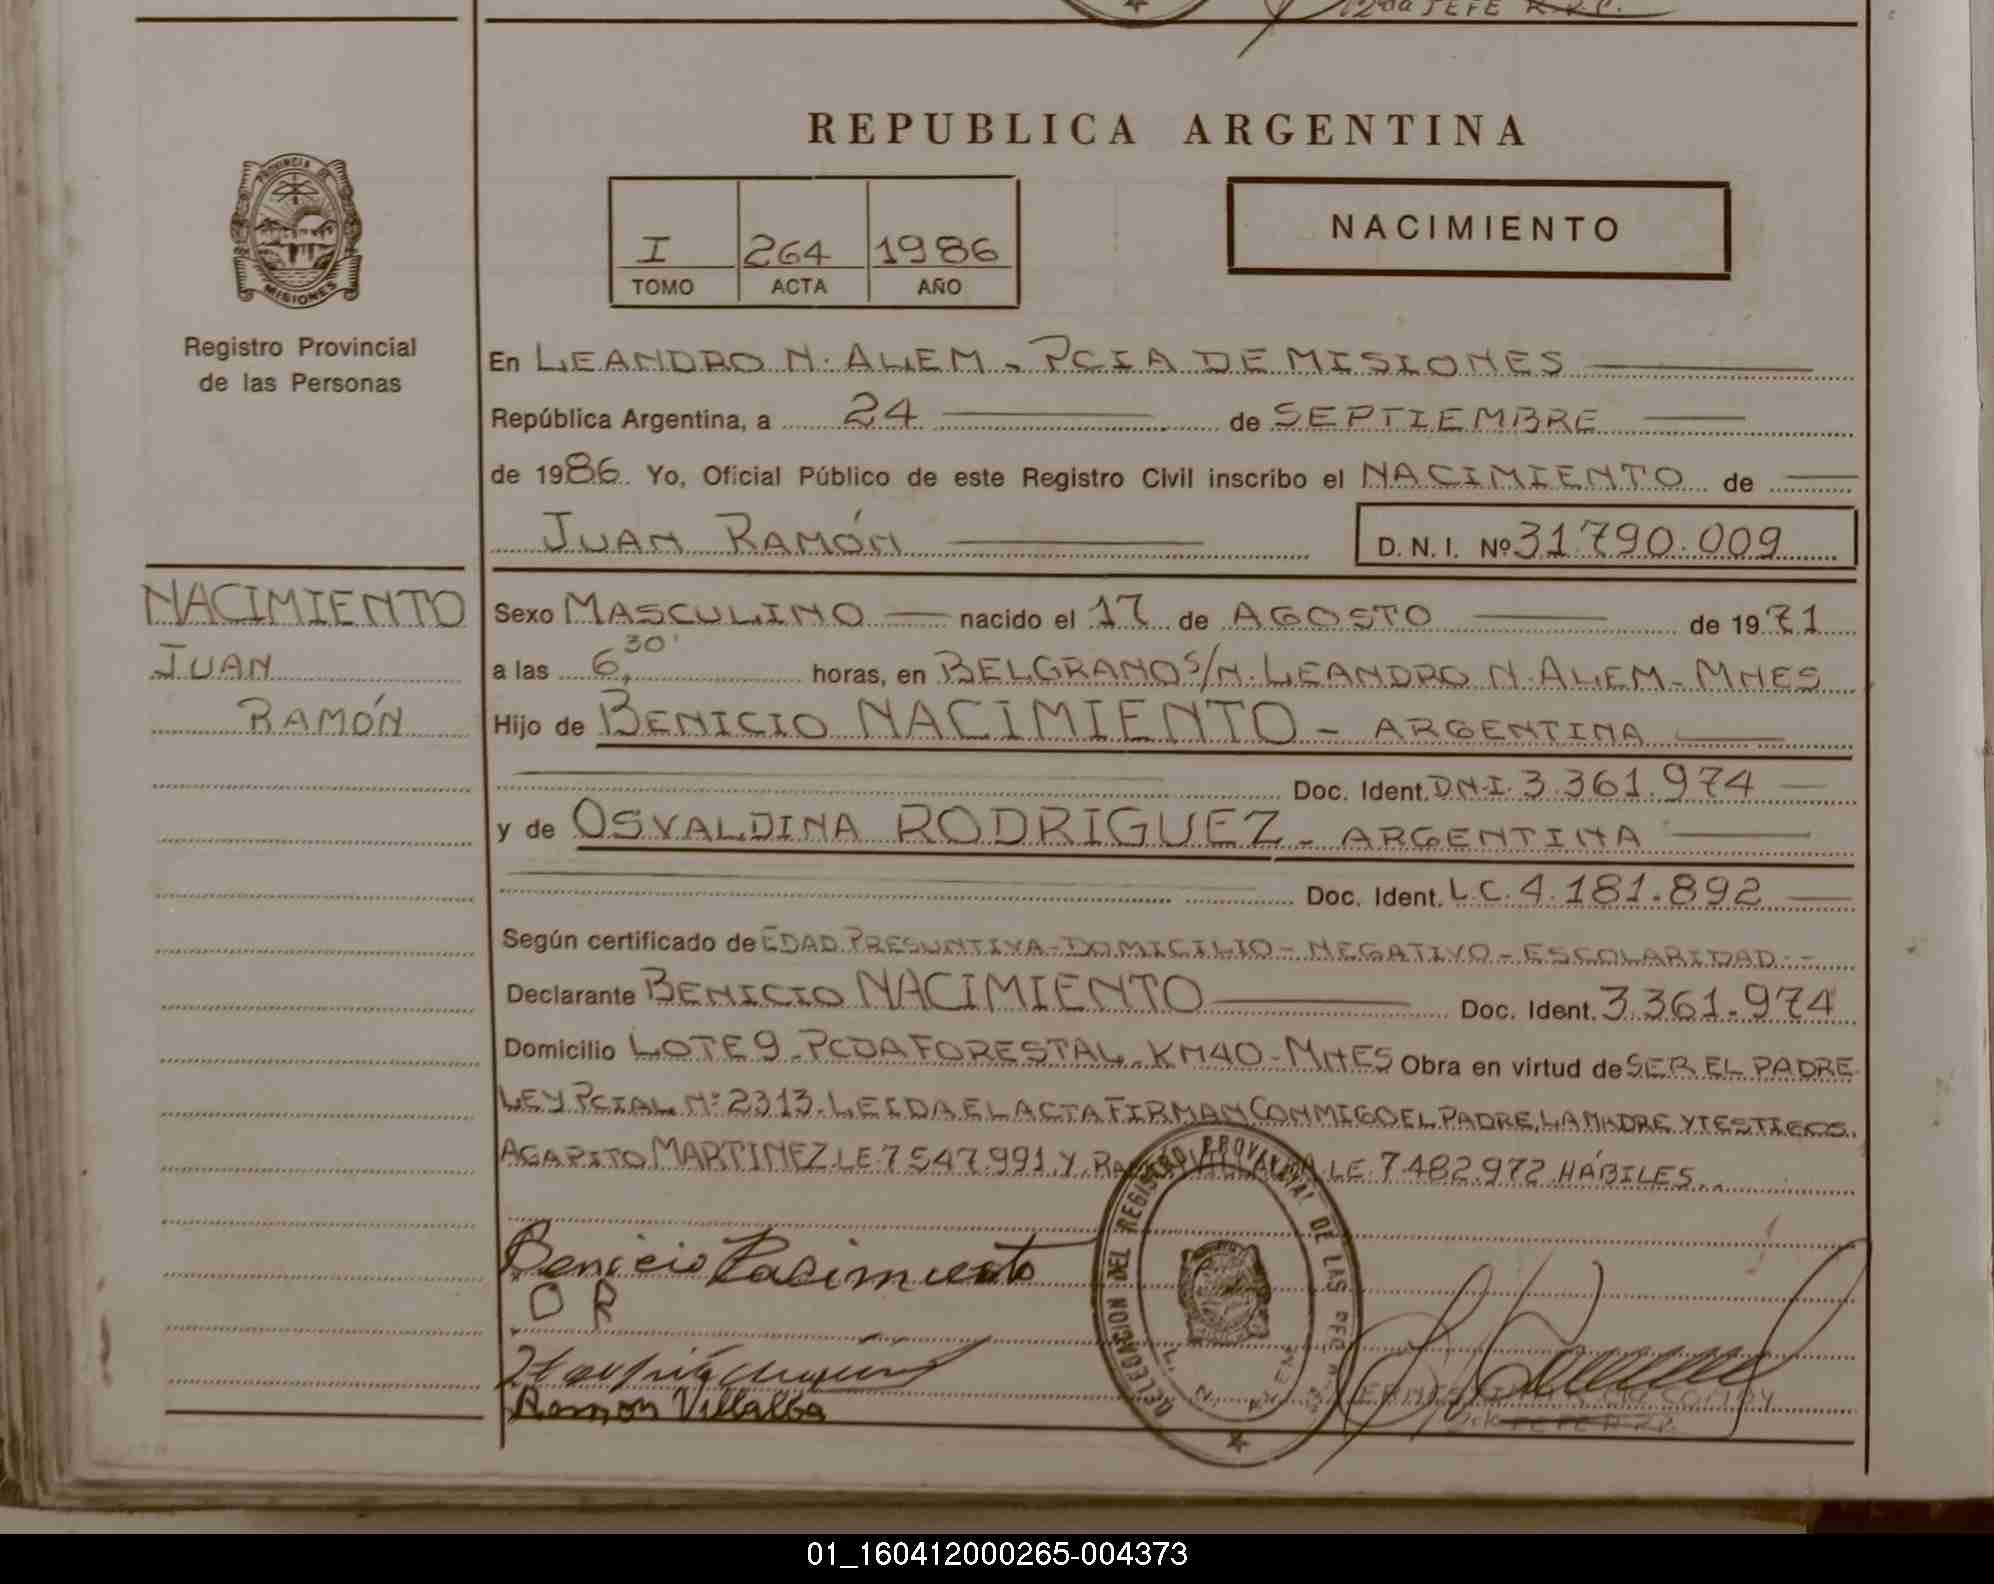 12da JEFE R.P.C.
REPUBLICA ARGENTINA
PROVINCIA DE MISIONES
Registro Provincial
de las Personas
I 264 1986
TOMO ACTA AÑO
NACIMIENTO
En LEANDRO N. ALEM - PCIA DE MISIONES
República Argentina, a 24 de SEPTIEMBRE
de 1986 Yo, Oficial Público de este Registro Civil inscribo el NACIMIENTO de
JUAN RAMÓN D.N.I. Nº 31.790.009
NACIMIENTO
JUAN
RAMÓN
Sexo MASCULINO nacido el 17 de AGOSTO de 1971
a las 6,30' horas, en BELGRANO S/N. LEANDRO N. ALEM - MNES
Hijo de BENICIO NACIMIENTO - ARGENTINA
Doc. Ident. D.N.I. 3.361.974
y de OSVALDINA RODRIGUEZ - ARGENTINA
Doc. Ident. L.C. 4.181.892
Según certificado de EDAD PRESUNTIVA - DOMICILIO - NEGATIVO - ESCOLARIDAD.-
Declarante BENICIO NACIMIENTO Doc. Ident. 3.361.974
Domicilio LOTE 9 - PCDA FORESTAL - KM 40 - MNES Obra en virtud de SER EL PADRE
LEY PCIAL Nº 2313. LEIDA EL ACTA FIRMAN CONMIGO EL PADRE, LA MADRE Y TESTIGOS.
AGAPITO MARTINEZ LE 7547.991 Y LE. 7.482.972 HÁBILES..
Benicio Nacimiento
O R
Ramon Villalba
DELEGACION DEL REGISTRO PROVINCIAL DE LAS
L. N. ALEM
01_160412000265-004373